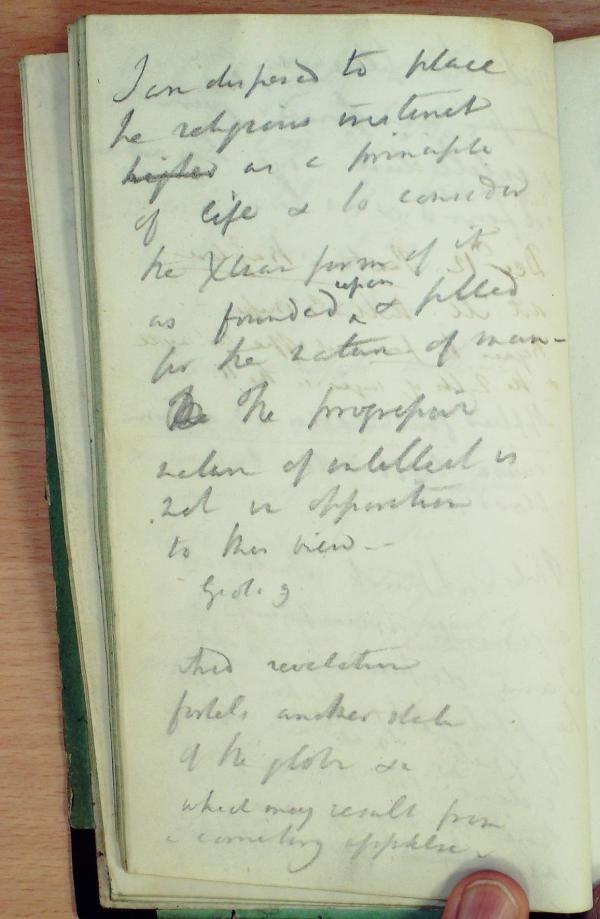 I am disposed to place
the religious instinct
higher as a principle
of life & to consider
the Xtian form of it
as founded upon & fitted
for the nature of man -
The progressive
nature of intellect is
not in opposition
to this view -
Geol. 3
revelation
fortels another state
of the globe &c
which may result from
a cometary appulse.